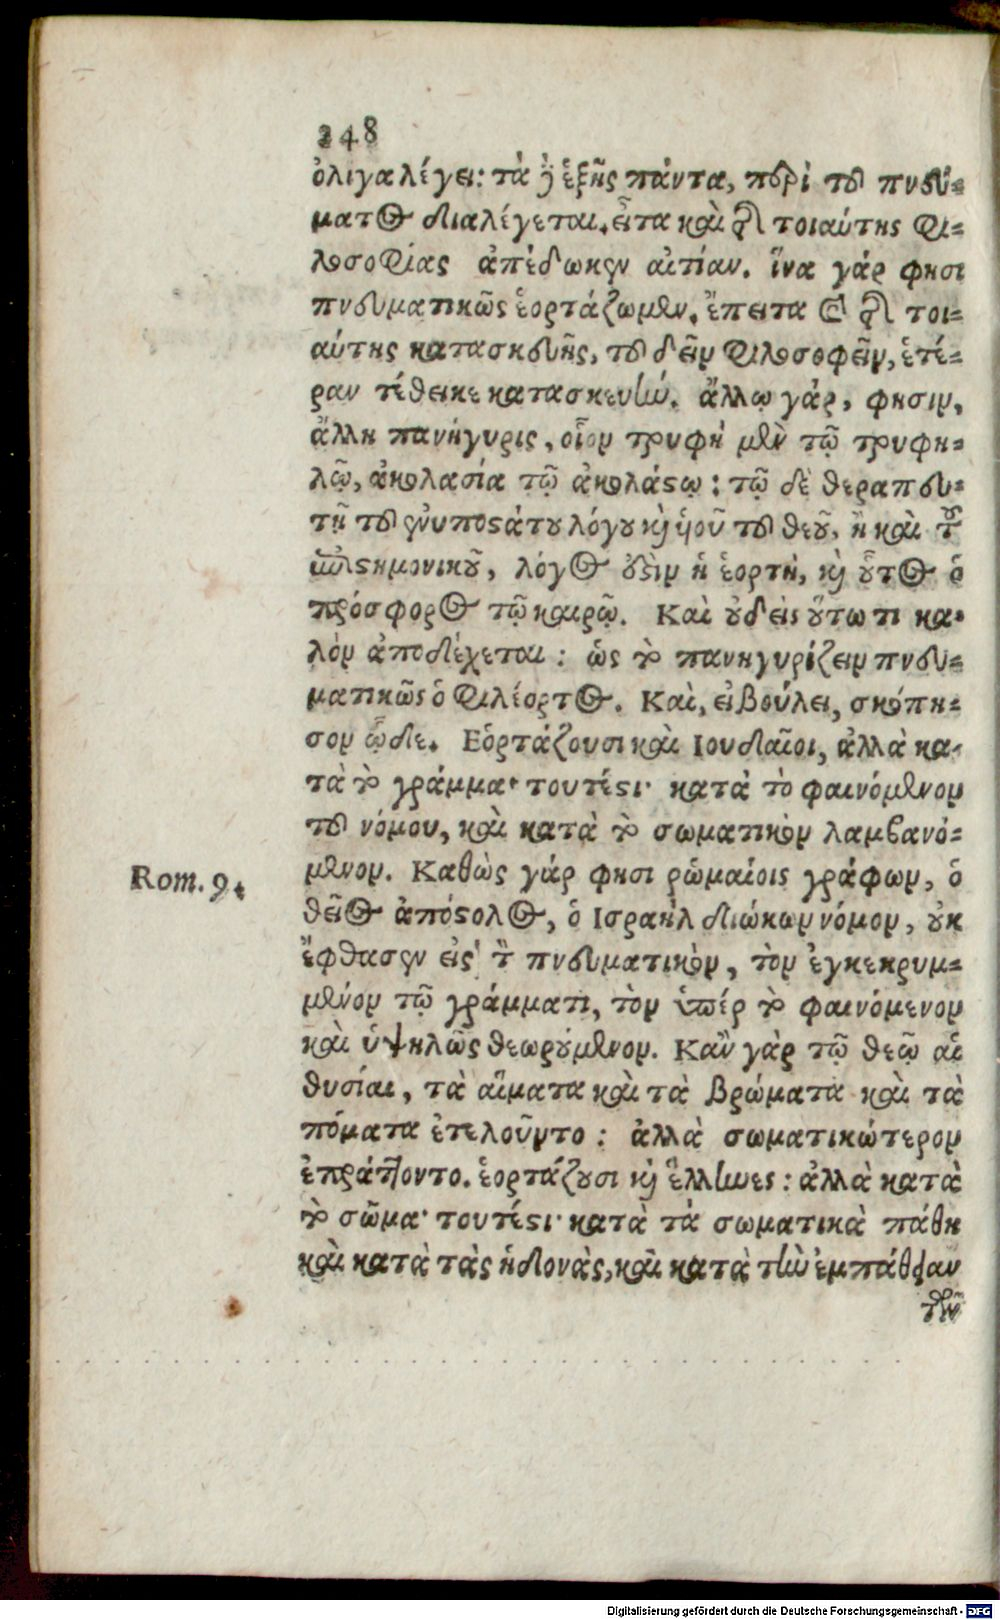 248
ὀλιγα λέγει: τὰ δ' ἑξῆς πάντα, περὶ τοῦ πνεύ-
ματος διαλέγεται. εἶτα καὶ τῆς τοιαύτης φι-
λοσοφίας ἀπέδωκεν αἰτίαν. ἵνα γάρ φησι
πνευματικῶς ἑορτάζωμεν. ἔπειτα καὶ τῆς τοι-
αύτης κατασκευῆς, τοῦ δεῖν φιλοσοφεῖν, ἑτέ-
ραν τέθεικε κατασκευήν. ἄλλῳ γάρ, φησιν,
ἄλλη πανήγυρις, οἷον τρυφὴ μὲν τῷ τρυφη-
λῷ, ἀκολασία τῷ ἀκολάστῳ: τῷ δὲ θεραπευ-
τῇ τοῦ ἐνυποστάτου λόγου καὶ υἱοῦ τοῦ θεοῦ, ἢ καὶ τοῦ
ἐπιστημονικοῦ, λόγος ἐστὶν ἡ ἑορτὴ, καὶ οὗτος ὁ
πρόσφορος τῷ καιρῷ. Καὶ οὐδεὶς οὕτω τι κα-
λὸν ἀποδέχεται: ὡς τὸ πανηγυρίζειν πνευ-
ματικῶς ὁ φιλέορτος. Καὶ, εἰ βούλει, σκόπη-
σον ὧδε. Εὁρτάζουσι καὶ Ιουδαῖοι, ἀλλὰ κα-
τὰ τὸ γράμμα· τουτέστι· κατὰ τὸ φαινόμενον
τοῦ νόμου, καὶ κατὰ τὸ σωματικὸν λαμβανό-
μενον. Καθὼς γάρ φησι ῥωμαίοις γράφων, ὁ
Rom. 9.
θεῖος ἀπόστολος, ὁ Ισραὴλ διώκων νόμον, οὐκ
ἔφθασεν εἰς τὸν πνευματικὸν, τὸν ἐγκεκρυμ-
μένον τῷ γράμματι, τὸν ὑπὲρ τὸ φαινόμενον
καὶ ὑψηλῶς θεωρούμενον. Καἂν γὰρ τῷ θεῷ αἱ
θυσίαι, τὰ αἵματα καὶ τὰ βρώματα καὶ τὰ
πόματα ἐτελοῦντο: ἀλλὰ σωματικώτερον
ἐπράττοντο. ἑορτάζουσι καὶ ἕλληνες: ἀλλὰ κατὰ
τὸ σῶμα· τουτέστι· κατὰ τὰ σωματικὰ πάθη
καὶ κατὰ τὰς ἡδονὰς, καὶ κατὰ τὴν ἐμπάθειαν
τῶν
Digitalisierung gefördert durch die Deutsche Forschungsgemeinschaft - DFG